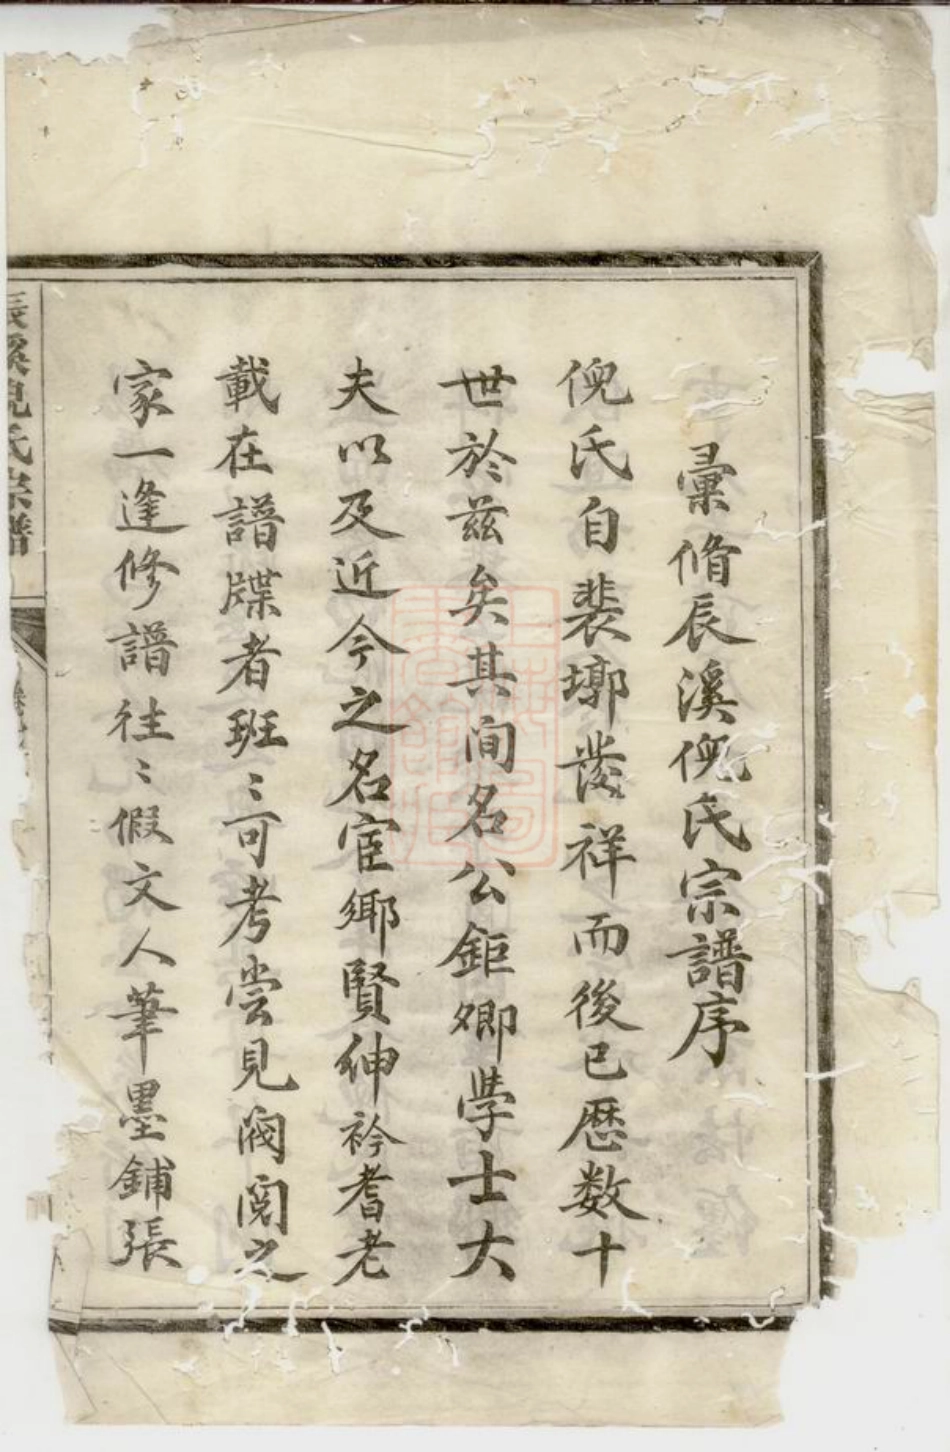 彙脩辰溪倪氏宗譜序
倪氏自裴墎發祥而後已歷数十
世於兹矣其间名公鉅卿學士大
夫以及近今之名宦鄉賢紳衿耆老
載在譜牒者班〻可考嘗見閥閱之
家一逢修譜往〻假文人筆墨鋪張
辰溪倪氏宗譜